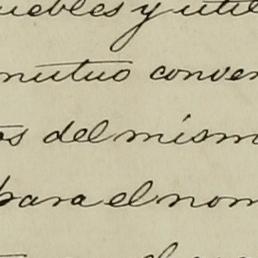 uebles y util
mutuo conven
os del mismo
para el nom